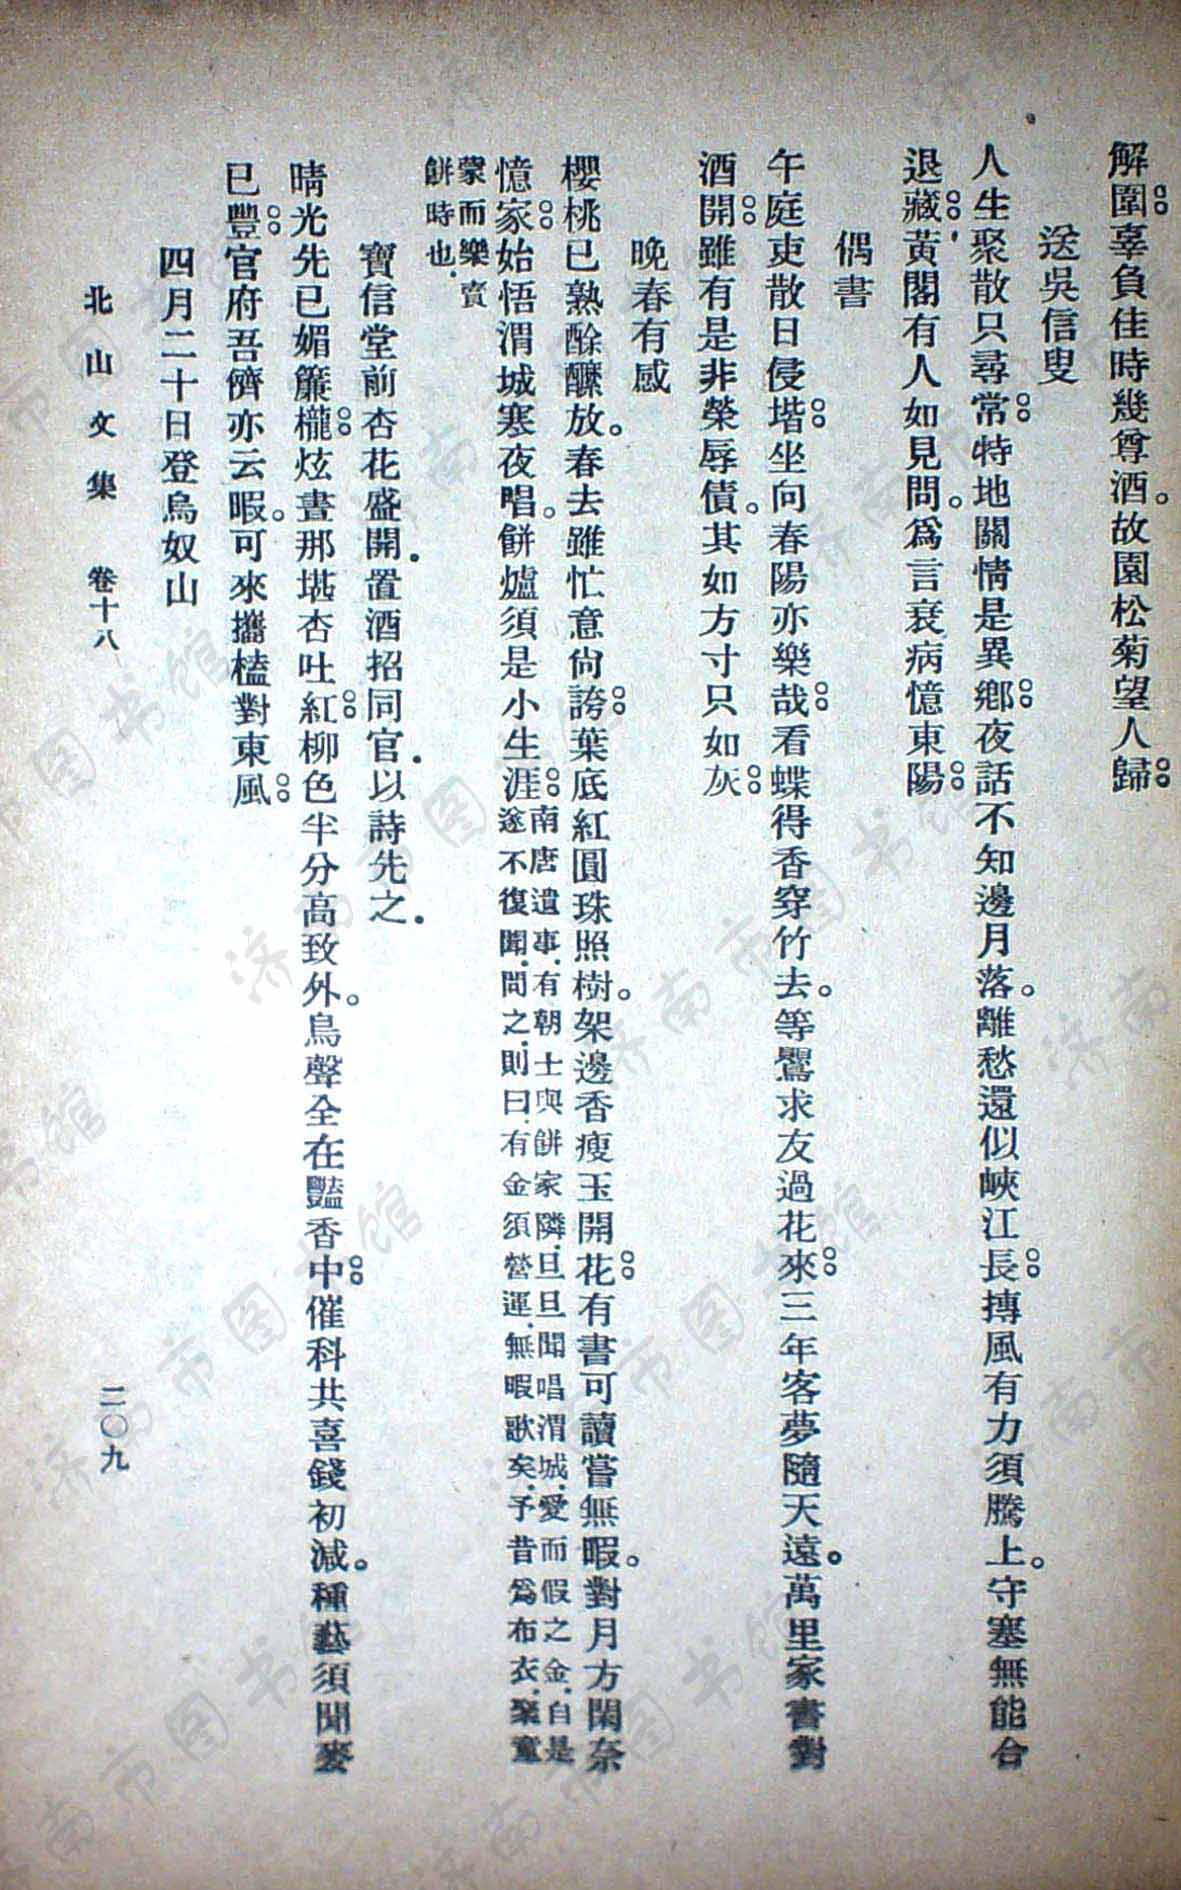 解圍辜負佳時幾尊酒。故園松菊望人歸
送吳信叟
人生聚散只尋常特地關情是異鄉夜話不知邊月落。離愁還似峽江長摶風有力須騰上。守塞無能合
退藏黃閣有人如見問。爲言衰病憶東陽
偶書
午庭吏散日侵堦坐向春陽亦樂哉看蝶得香穿竹去。等鸎求友過花來三年客夢隨天遠。萬里家書對
酒開雖有是非榮辱債。其如方寸只如灰
晚春有感
櫻桃已熟酴醿放。春去雖忙意尙誇葉底紅圓珠照樹。架邊香瘦玉開花有書可讀嘗無暇。對月方閑奈
憶家始悟渭城寒夜唱。餅爐須是小生涯南唐遺事.有朝士與餅家隣.旦旦聞唱渭城.愛而假之金.自是
遂不復聞.問之.則曰.有金須營運.無暇歌矣.予昔爲布衣.聚童
蒙而樂賣
餅時也.
寶信堂前杏花盛開.置酒招同官.以詩先之.
晴光先已媚簾櫳炫晝那堪杏吐紅柳色半分高致外。鳥聲全在豔香中催科共喜錢初減。種藝須聞麥
已豐官府吾儕亦云暇。可來攜榼對東風
四月二十日登烏奴山
北山文集 卷十八 二〇九
济南市图书馆